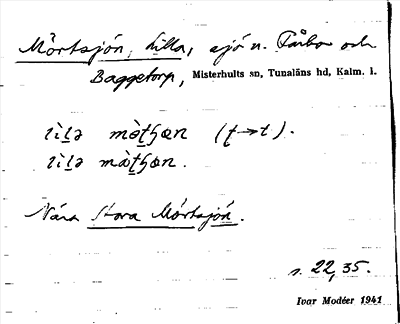 Mörtsjön, Lilla, sjö n. Fårbo och
Baggetorp, Misterhults sn, Tunaläns hd, Kalm. l.
lìlə
lìlə
Nära Stora Mörtsjön.
s. 22, 35.
Ivar Modéer 1941